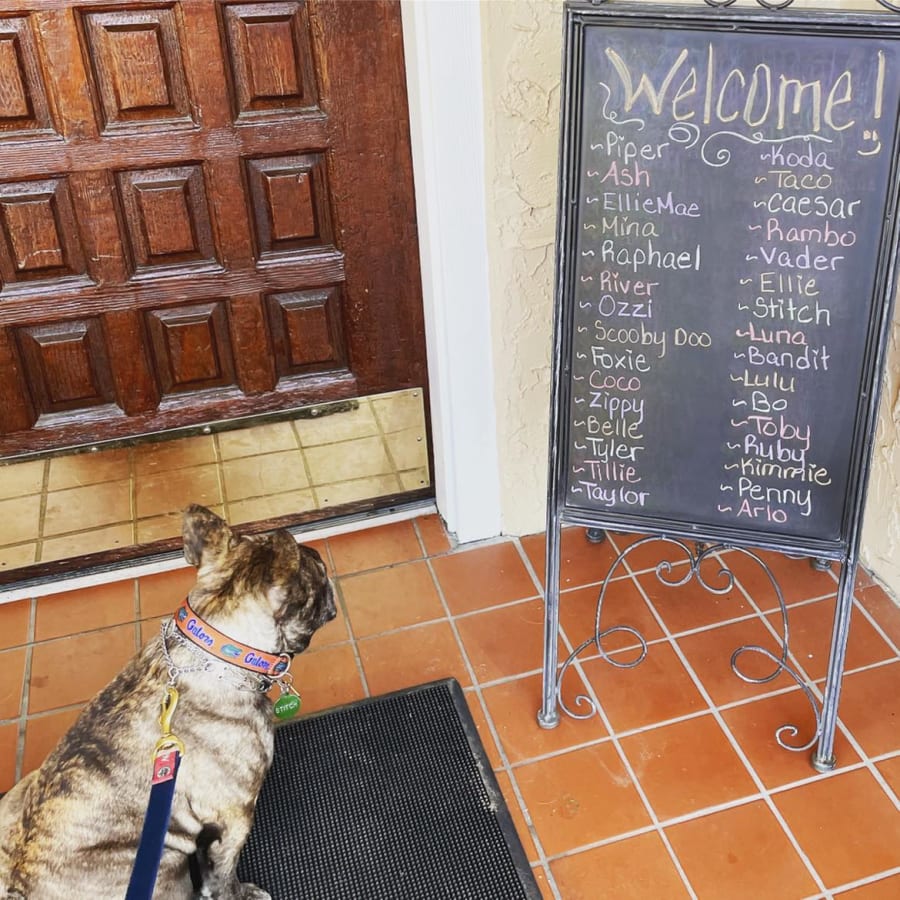 Welcome!
~Piper
~Ash
~EllieMae
~Mina
~Raphael
~River
~Ozzi
~Scooby Doo
~Foxie
~Coco
~Zippy
~Belle
~Tyler
~Tillie
~Taylor
~Koda
~Taco
~Caesar
~Rambo
~Vader
~Ellie
~Stitch
~Luna
~Bandit
~Lulu
~Bo
~Toby
~Ruby
~Kimmie
~Penny
~Arlo
Gators Gators
STITCH